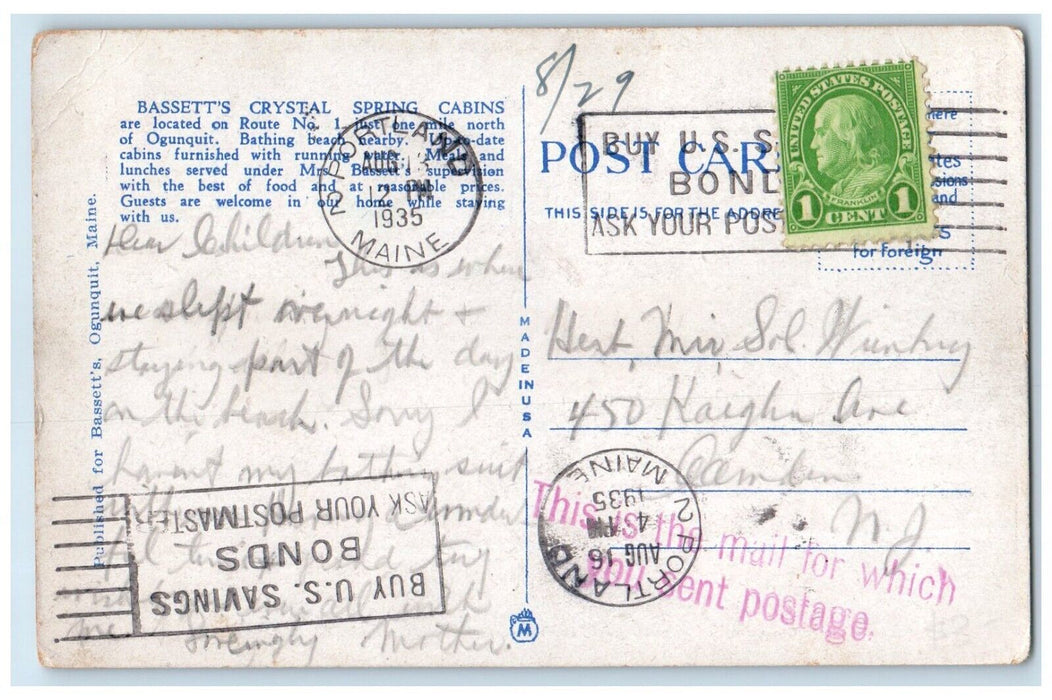 BASSETT'S CRYSTAL SPRING CABINS
are located on Route No. 1 just one mile north
of Ogunquit. Bathing beach nearby. Up-to-date
cabins furnished with running water. Meals and
lunches served under Mrs. Bassett's supervision
with the best of food and at reasonable prices.
Guests are welcome in our home while staying
with us.
Published for Bassett's, Ogunquit, Maine.
Dear Children
This is where
we slept overnight +
staying part of the day
on the beach. Sorry I
haven't my bathing suit
you all with
me Lovingly Mother.
PORTLAND
AUG 13
12 PM
1935
MAINE
2
8/29
POST CARD
THIS SIDE IS FOR THE ADDRE
here
and
for foreign
BUY U.S. S
BOND
ASK YOUR POS
UNITED STATES POSTAGE
FRANKLIN
1 CENT 1
MADE IN USA
450 Kaighn Ave
Camden
N.J.
PORTLAND 2
AUG 16
4 PM
1935
MAINE
This is the mail for which
you sent postage.
BUY U.S. SAVINGS
BONDS
ASK YOUR POSTMASTER
M